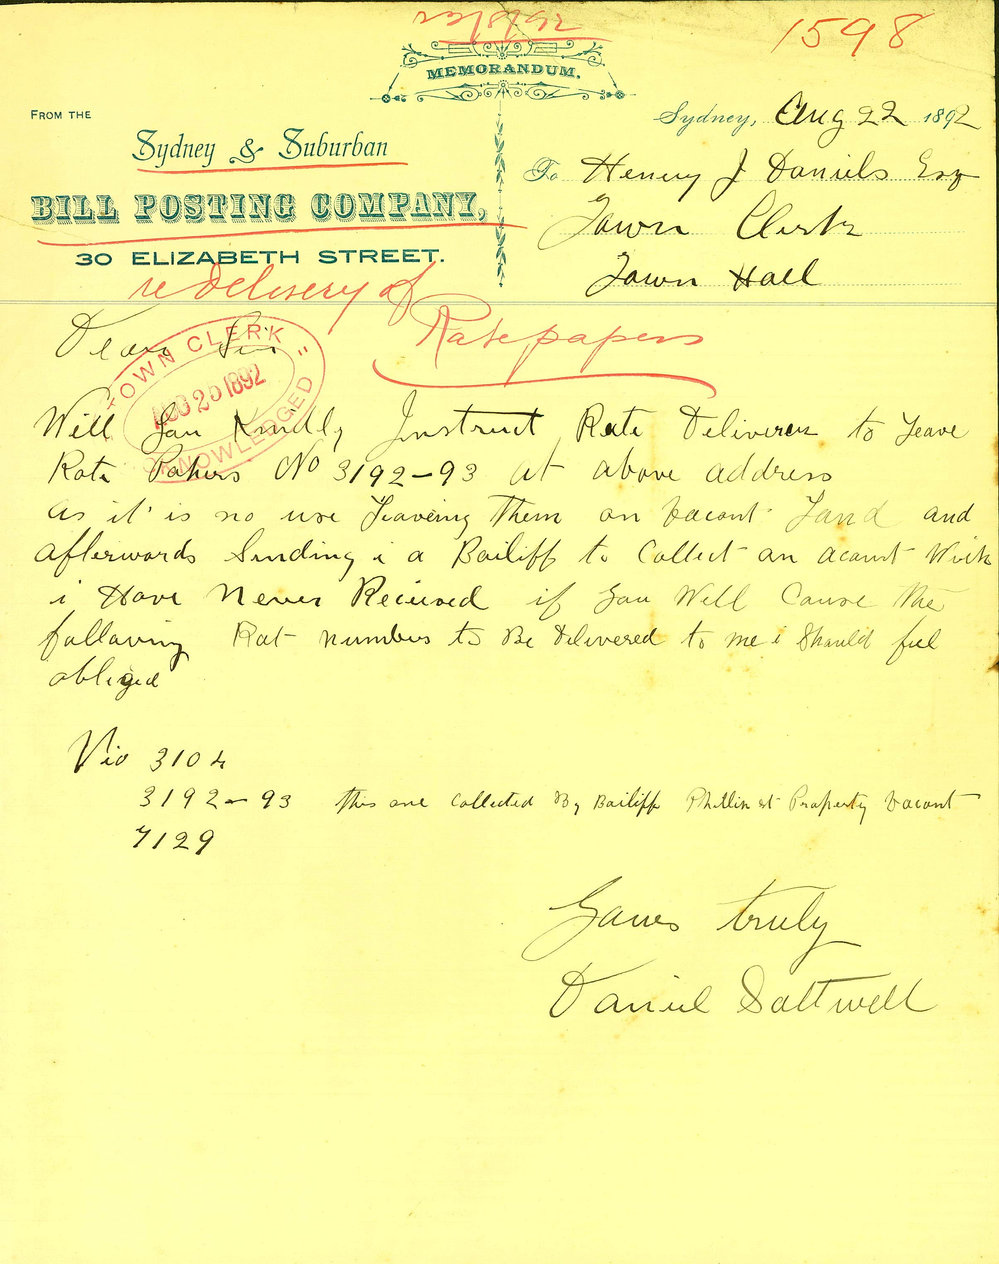 1598
MEMORANDUM.
FROM THE
Sydney & Suburban
BILL POSTING COMPANY,
30 ELIZABETH STREET.
Sydney, Aug 22 1892
To Henry J Daniels Esq
Town Clerk
Town Hall
re delivery of
Ratepapers
Dear Sir
TOWN CLERK
AUG 25 1892
ACKNOWLEDGED
Will you Kindly Instruct Rate Deliverers to Leave
Rate Papers No 3192-93 at above address
as it is no use Leaving Them on Vacant Land and
afterwards Sending i a Bailiff to Collect an acount Wich
i Have Never Recieved if you Will Cause the
following Rat numbers to Be Delivered to me i Should feel
obliged
3104
3192-93 this one collected By Bailiff Phillip st Property Vacant
7129
Yours truly
Daniel Saltwell